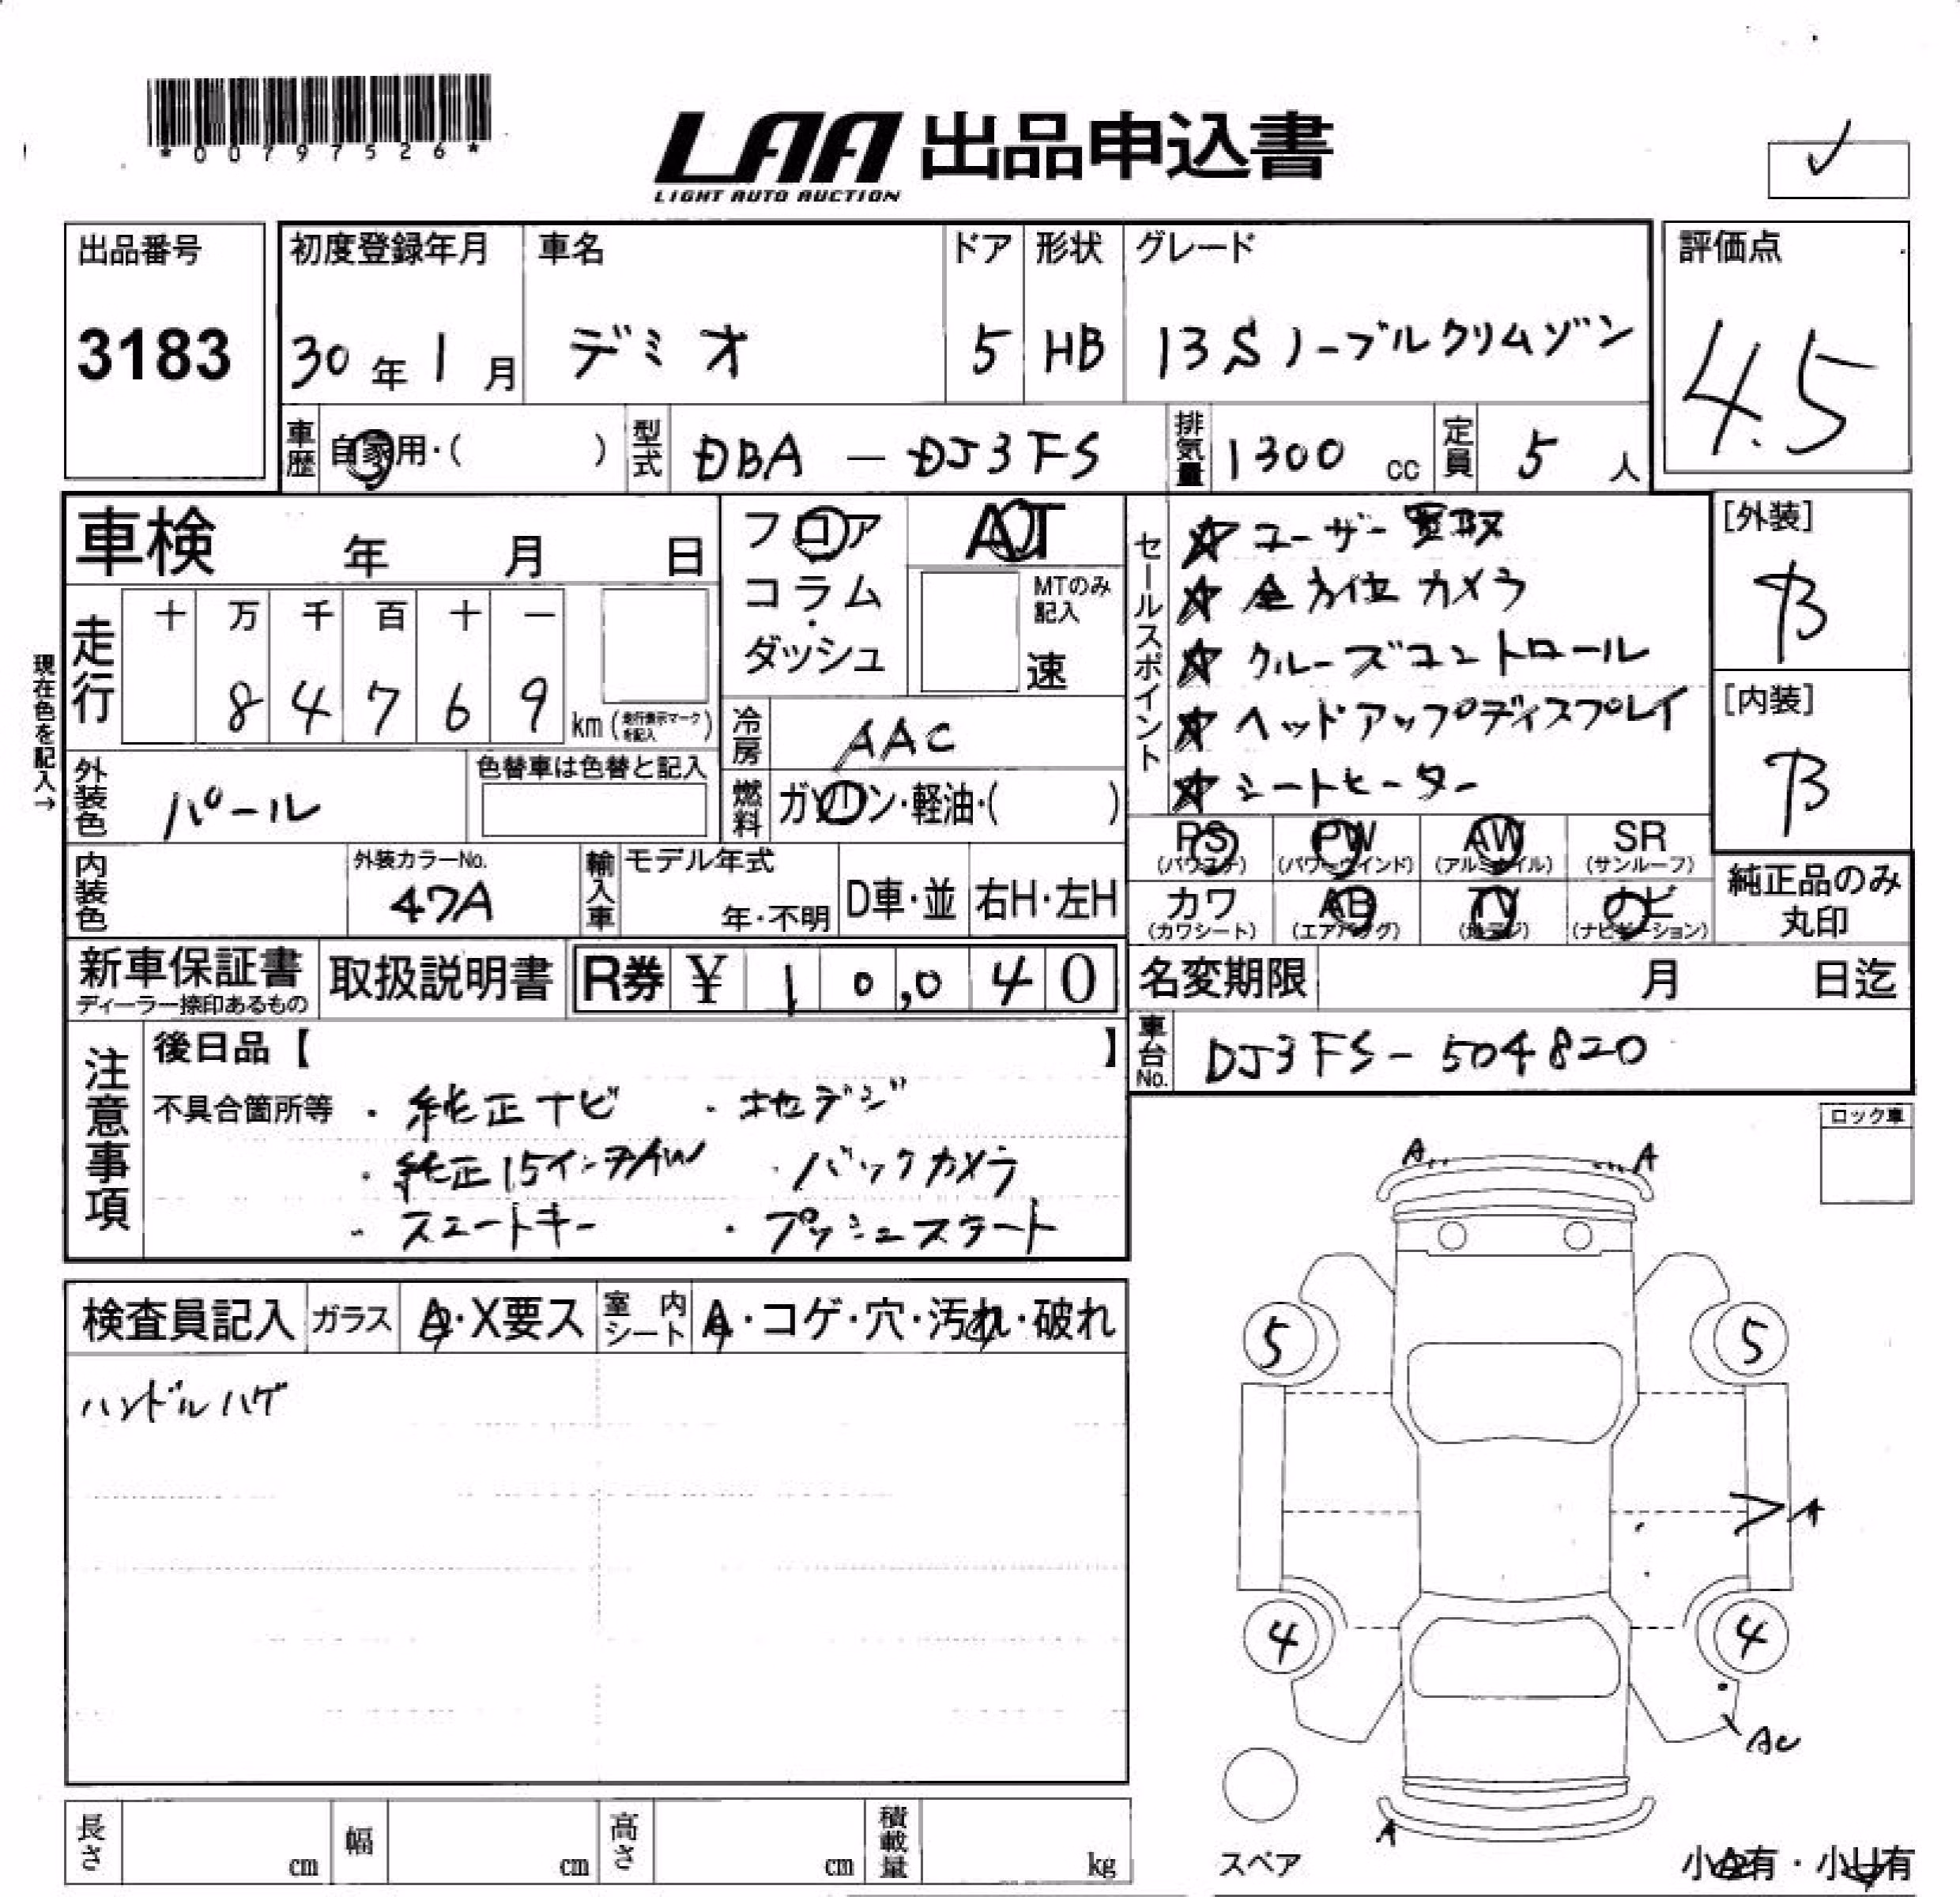 *00797526*
LAA 出品申込書
LIGHT AUTO AUCTION
✓
出品番号
3183
初度登録年月
30年 1月
車名
デミオ
ドア
5
形状
HB
グレード
13S ノーブルクリムゾン
評価点
4.5
車歴
自家用・( )
型式
DBA - DJ3FS
排気量
1300 cc
定員
5 人
車検 年 月 日
現在色を記入→
走行
十 万 千 百 十 一
8 4 7 6 9
km (走行表示マークを記入)
フロア
コラム
ダッシュ
AT
MTのみ記入
速
冷房
AAC
燃料
ガソリン・軽油・( )
セールスポイント
☆ユーザー買取
☆全方位カメラ
☆クルーズコントロール
☆ヘッドアップディスプレイ
☆シートヒーター
[外装]
B
[内装]
B
外装色
パール
色替車は色替と記入
内装色
外装カラーNo.
47A
輸入車
モデル年式
年・不明
D車・並
右H・左H
PS (パワステ)
PW (パワーウインド)
AW (アルミホイル)
SR (サンルーフ)
カワ (カワシート)
AB (エアバッグ)
TV (地デジ)
ナビ (ナビゲーション)
純正品のみ
丸印
新車保証書
ディーラー捺印あるもの
取扱説明書
R券 ¥ 10,040
名変期限 月 日迄
車台No.
DJ3FS-504820
注意事項
後日品【 】
不具合箇所等 ・純正ナビ ・地デジ
・純正15インチAW ・バックカメラ
・スマートキー ・プッシュスタート
ロック車
検査員記入
ガラス
A・X要ス
室内シート
A・コゲ・穴・汚れ・破れ
ハンドルハゲ
A A
5 5
A
4 4
AU
A
スペア
小A有・小U有
長さ cm
幅 cm
高さ cm
積載量 kg